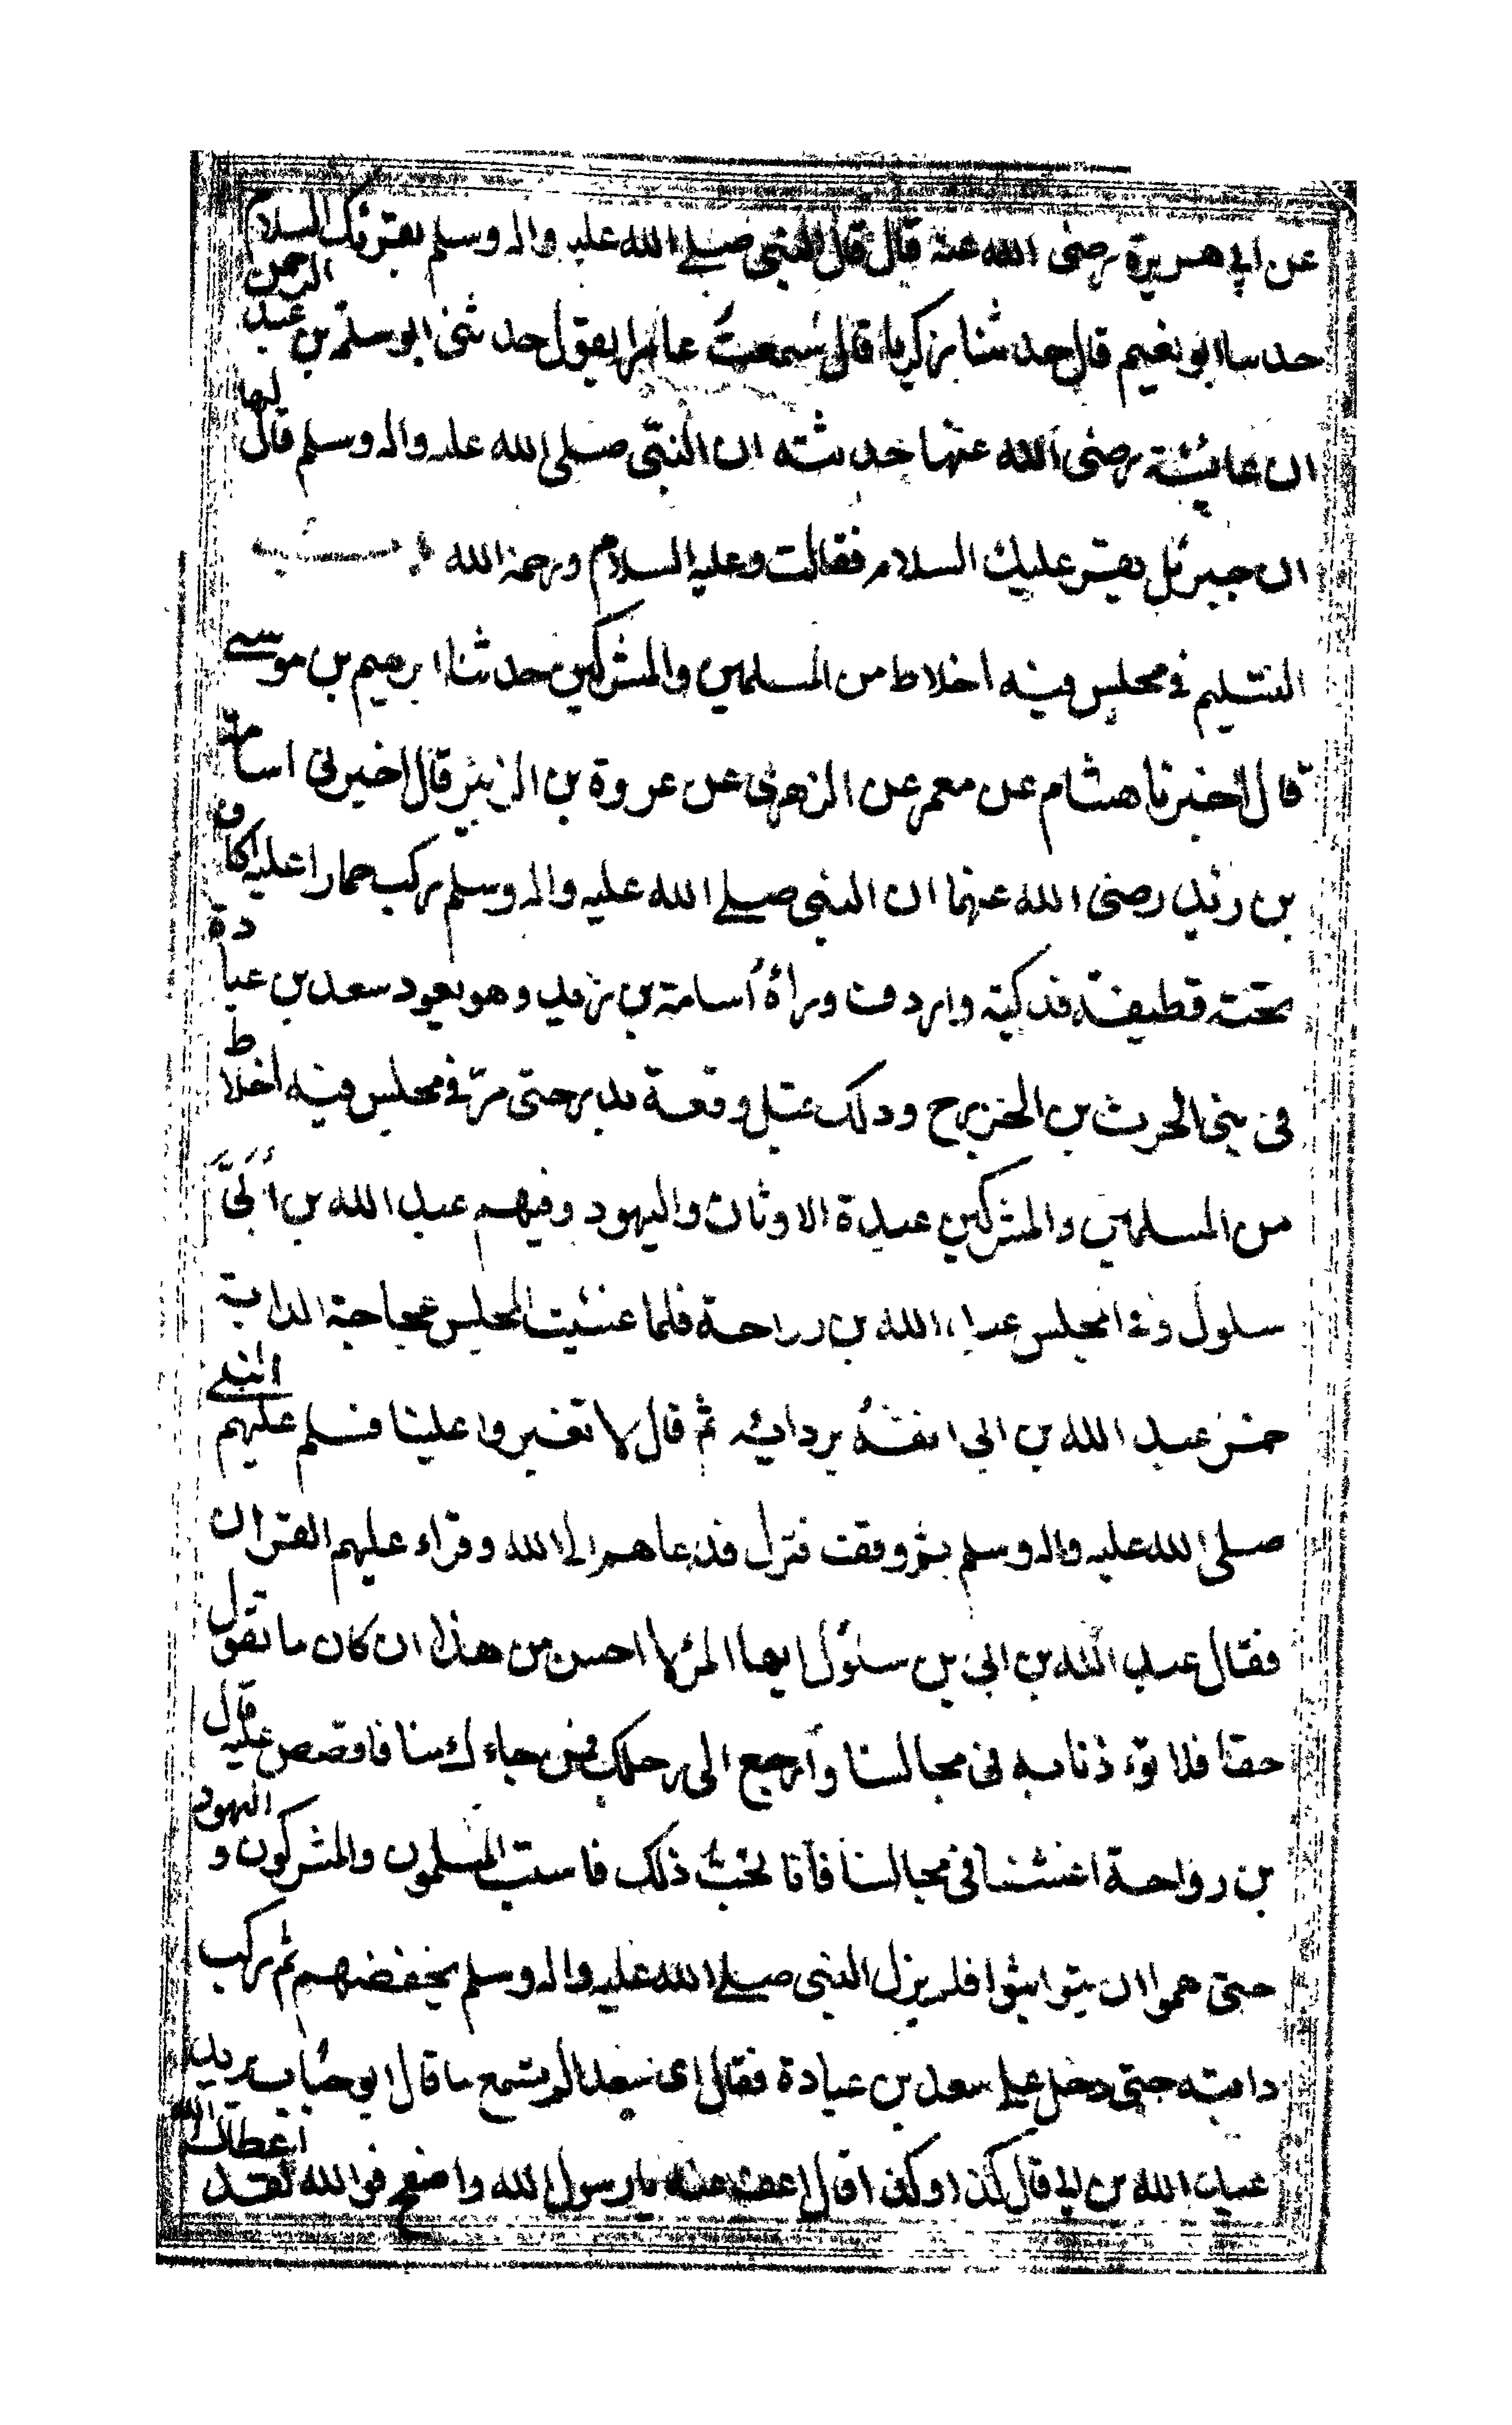 عن ابي هريرة رضى الله عنه قال قال النبى صلى الله عليه واله وسلم يقرئك السلام
حدثنا ابو نعيم قال حدثنا زكريا قال سمعت عامرا يقول حدثنى ابو سلمة بن عبد الرحمن
ان عايشة رضى الله عنها حدثته ان النبى صلى الله عليه واله وسلم قال لها
ان جبرئل يقرء عليك السلام فقالت وعليه السلام ورحمة الله باب
التسليم في مجلس فيه اخلاط من المسلمين والمشركين حدثنا ابرهيم بن موسى
قال اخبرنا هشام عن معمر عن الزهرى عن عروة بن الزبير قال اخبرنى اسامة
بن زيد رضى الله عنهما ان النبى صلى الله عليه واله وسلم ركب حمارا عليه اكاف
تحته قطيفة فدكية واردف وراءه اسامة بن زيد وهو يعود سعد بن عبادة
فى بنى الحرث بن الخزرج وذلك قبل وقعة بدر حتى مر في مجلس فيه اخلاط
من المسلمين والمشركين عبدة الاوثان واليهود وفيهم عبد الله بن ابى
سلول وفى المجلس عبد الله بن رواحة فلما غشيت المجلس عجاجة الدابة
خمر عبد الله بن ابى انفه بردائه ثم قال لا تغبروا علينا فسلم عليهم النبى
صلى الله عليه واله وسلم ثم وقف فنزل فدعاهم الى الله وقراء عليهم القران
فقال عبد الله بن ابى بن سلول ايها المرء لا احسن من هذا ان كان ما تقول
حقا فلا تؤذنا به فى مجالسنا وارجع الى رحلك فمن جاءك منا فاقصص عليه قال
بن رواحة اغشنا فى مجالسنا فانا نحب ذلك فاستب المسلمون والمشركون و اليهود
حتى هموا ان يتواثبوا فلم يزل النبى صلى الله عليه واله وسلم يخفضهم ثم ركب
دابته حتى دخل على سعد بن عبادة فقال اى سعد الم تسمع ما قال ابو حباب يريد
عبد الله بن ابي قال كذا وكذا قال اعف عنه يا رسول الله واصفح فوالله لقد اعطاك الله